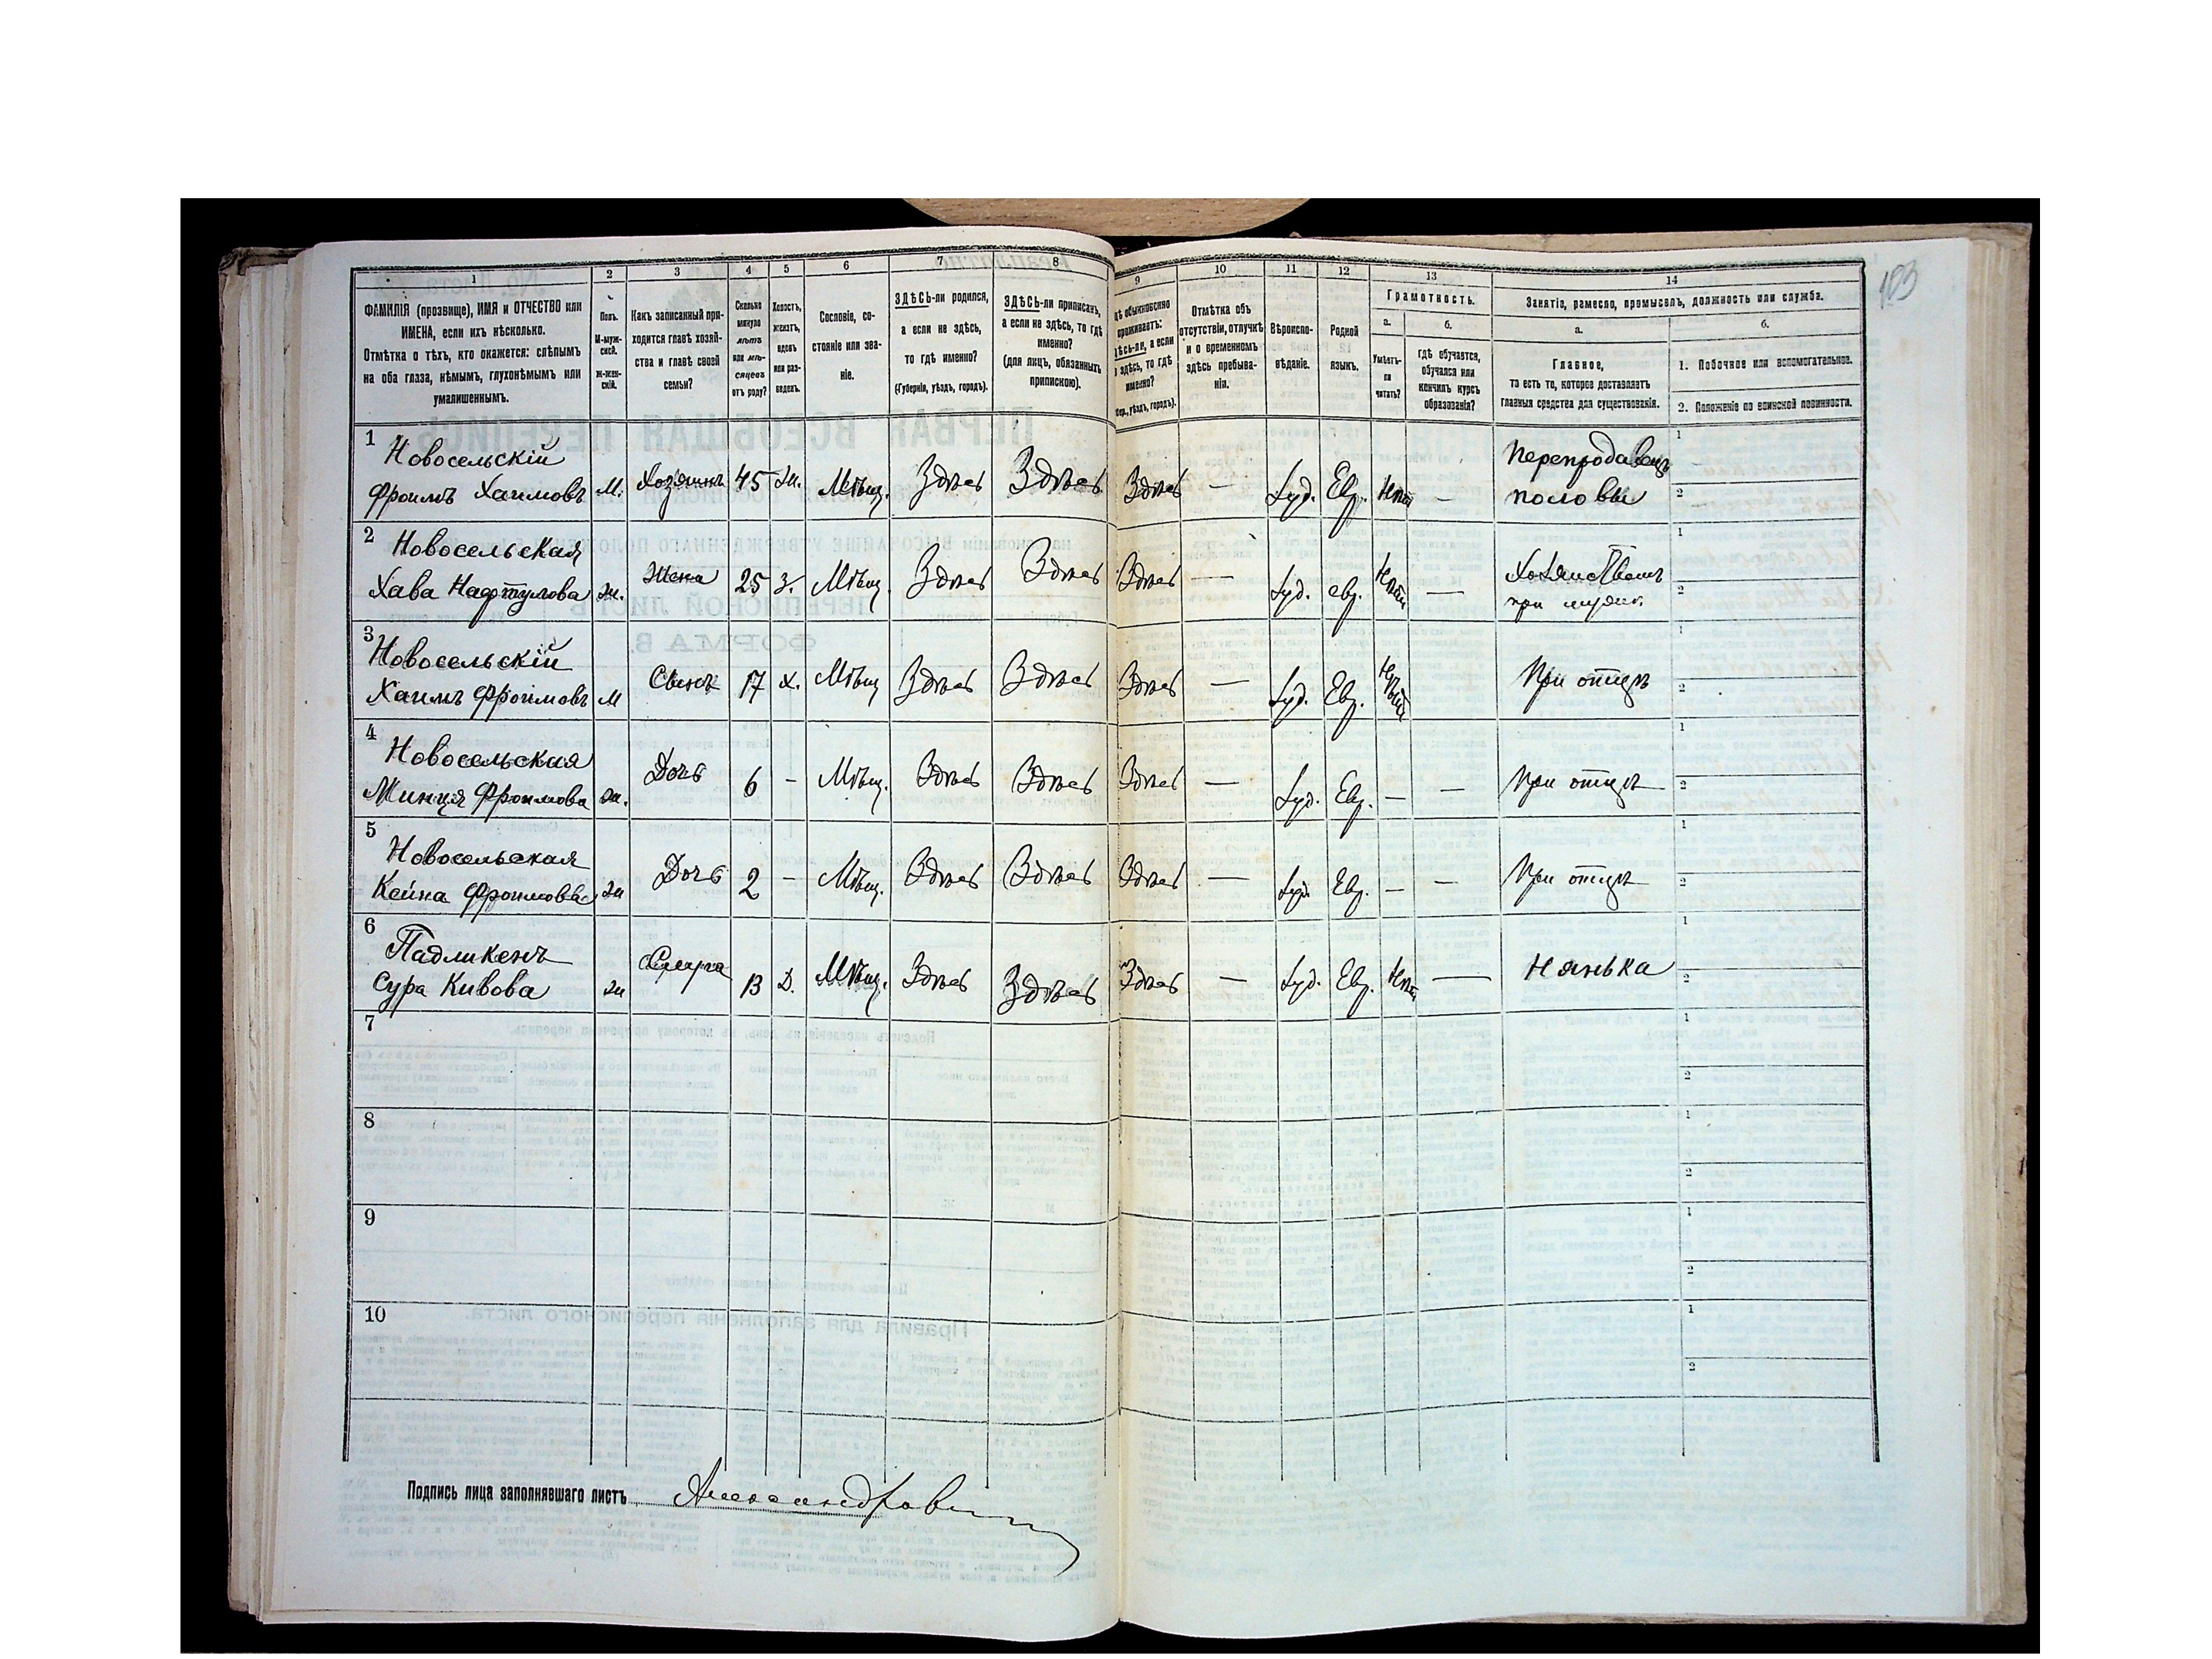 103
1 2 3 4 5 6 7 8 9 10 11 12 13 14
ФАМИЛІЯ (прозвище), ИМЯ и ОТЧЕСТВО или
ИМЕНА, если ихъ нѣсколько.
Отмѣтка о тѣхъ, кто окажется: слѣпымъ
на оба глаза, нѣмымъ, глухонѣмымъ или
умалишеннымъ.
Полъ.
М-муж-
ской.
Ж-жен-
скій.
Какъ записанный при-
ходится главѣ хозяй-
ства и главѣ своей
семьи?
Сколько
минуло
лѣтъ
или мѣ-
сяцевъ
отъ роду?
Холостъ,
женатъ,
вдовъ
или раз-
веденъ.
Сословіе, со-
стояніе или зва-
ніе.
ЗДѢСЬ-ли родился,
а если не здѣсь,
то гдѣ именно?
(Губернія, уѣздъ, городъ).
ЗДѢСЬ-ли приписанъ,
а если не здѣсь, то гдѣ
именно?
(для лицъ, обязанныхъ
припискою).
обыкновенно
проживаетъ:
здѣсь-ли, а если
не здѣсь, то гдѣ
именно?
уѣздъ, городъ).
Отмѣтка объ
отсутствіи, отлучкѣ
и о временномъ
здѣсь пребыва-
ніи.
Вѣроиспо-
вѣданіе.
Родной
языкъ.
Грамотность.
а.
Умѣетъ-
ли
читать?
б.
гдѣ обучается,
обучался или
кончилъ курсъ
образованія?
Занятіе, ремесло, промыселъ, должность или служба.
а.
Главное,
то есть то, которое доставляетъ
главныя средства для существованія.
б.
1. Побочное или вспомогательное.
2. Положеніе по воинской повинности.
1 Новосельскій
Фроимъ Хаимовъ М. Хозяинъ 45 Ж. Мѣщ. Здѣсь Здѣсь Здѣсь — Іуд. Евр. Нѣтъ — Перепродавецъ
половы
2 Новосельская
Хава Нафтулова Ж. Жена 25 З. Мѣщ. Здѣсь Здѣсь Здѣсь — Іуд. евр. Нѣтъ —
при мужѣ
3 Новосельскій
Хаимъ Фроимовъ М Сынъ 17 Х. Мѣщ Здѣсь Здѣсь Здѣсь — Іуд. Евр. При отцѣ
4 Новосельская
Минця Фроимова Ж. Дочь 6 — Мѣщ. Здѣсь Здѣсь Здѣсь — Іуд. Евр. — — При отцѣ
5 Новосельская
Кейна Фроимова Ж Дочь 2 — Мѣщ. Здѣсь Здѣсь Здѣсь — Іуд. Евр. — — При отцѣ
6 Падликенъ
Сура Кивова Ж 13 Д. Мѣщ. Здѣсь Здѣсь Здѣсь — Іуд. Евр. Нѣтъ — Нянька
7
8
9
10
Подпись лица заполнявшаго листъ